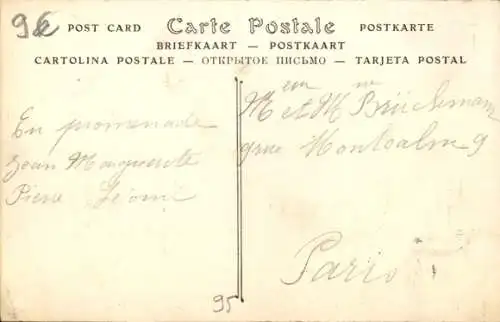 96
POST CARD Carte Postale POSTKARTE
BRIEFKAART — POSTKAART
CARTOLINA POSTALE — ОТКРЫТОЕ ПИСЬМО — TARJETA POSTAL
En promenade
Jean Marguerite
Pierre
M et Mme
9 rue Montcalm 9
Paris
95